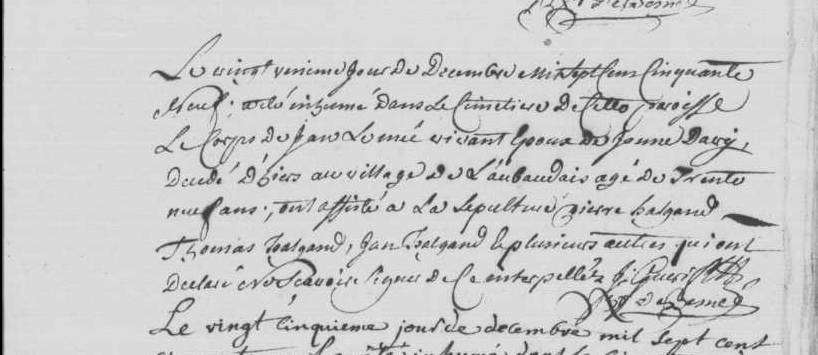 Le vingt unieme jour de Decembre mil sept Cens Cinquante
neuf. a été inhumé dans Le Cimetiere De Cette paroisse
Le Corps de Jan vivant Epoux de Janne Davy,
Decedé D'hiers au village De L'aubaudais agé De Trente
neuf ans., ont assisté a La sepulture pierre halgand
Thomas halgand, Jan halgand & plusieurs autres qui ont
Declaré ne Scavoir Signer de Ce interpellés
Le vingt cinquieme jour de decembre mil sept cent
inhumé dans le